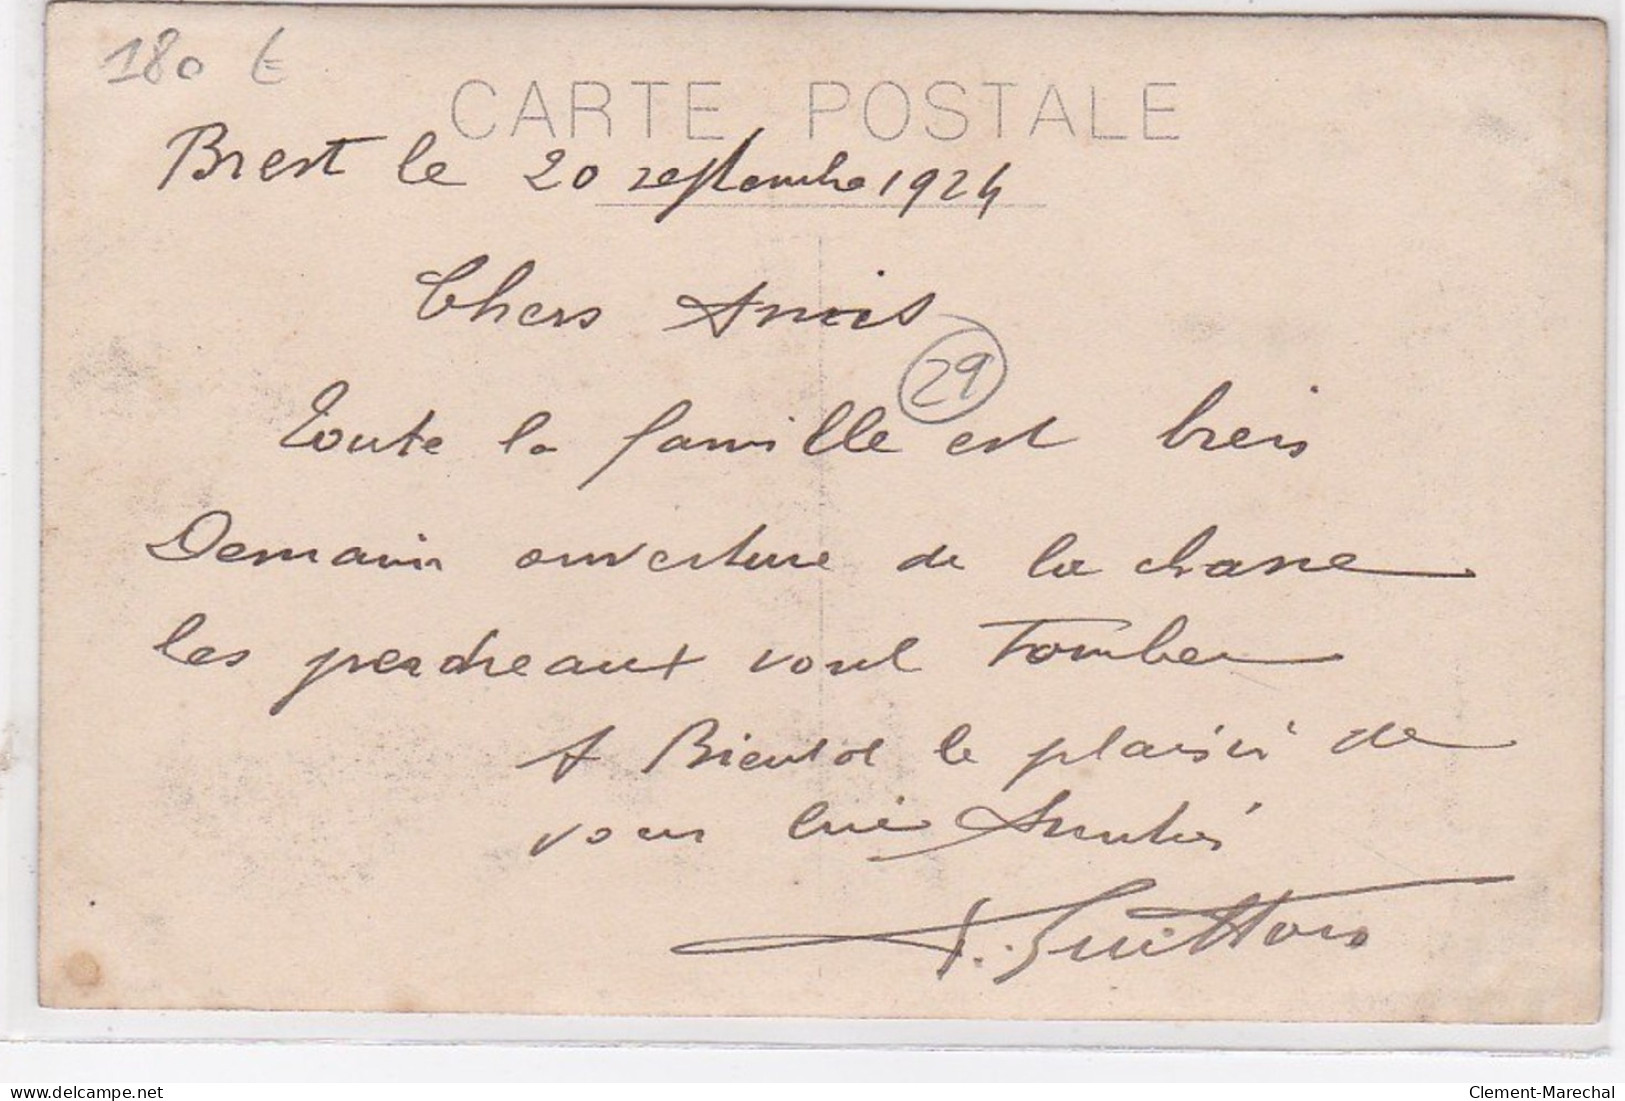 180 €
CARTE POSTALE
Brest le 20 septembre 1924
Chers Amis
29
Toute la famille est bien
Demain ouverture de la chasse
les perdreaux vont Tomber
A Bientot le plaisir de
vous lire Amitiés
Guitton
delcampe.net
Clement-Marechal